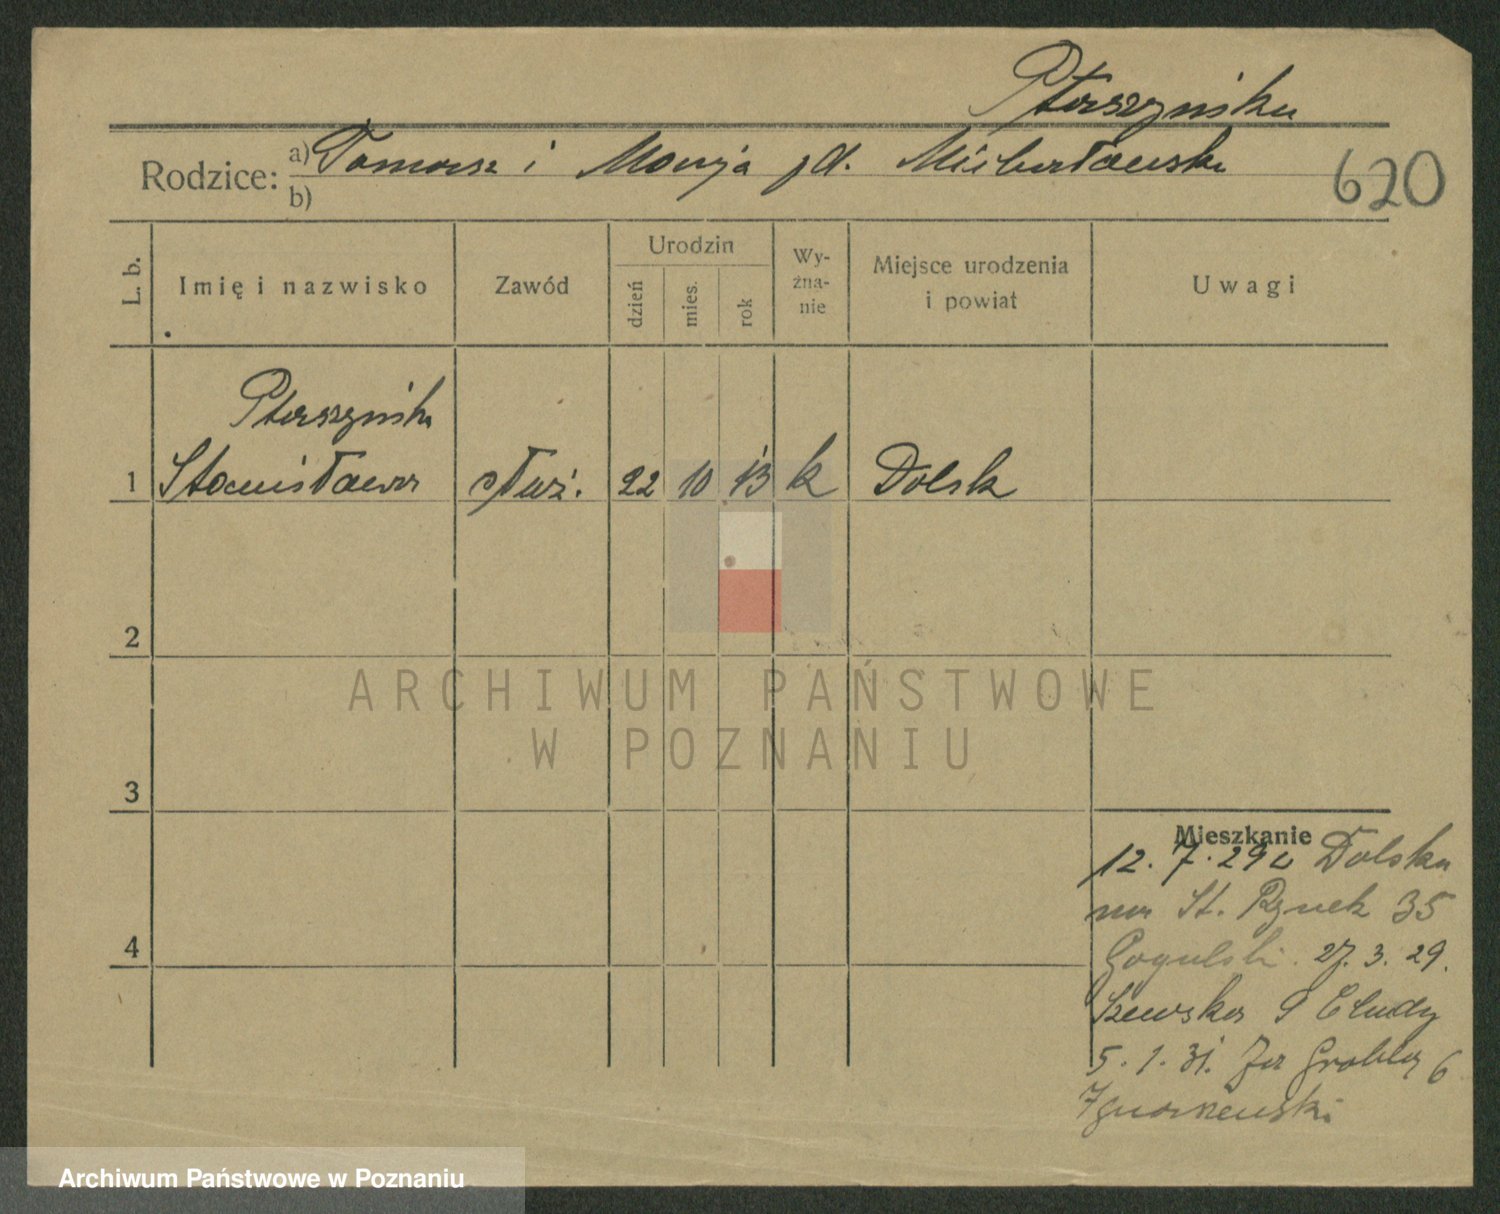 Ptaszyńska
Rodzice: a) Tomasz i Maryja zd. Michałowska
b)
620
L. b.
Imię i nazwisko
Zawód
Urodzin
dzień
mies.
rok
Wy-
zna-
nie
Miejsce urodzenia
i powiat
Uwagi
Ptaszyńska
1 Stanisława służ. 22 10 13 k Dolsk
2
ARCHIWUM PAŃSTWOWE
W POZNANIU
3
Mieszkanie
12. 7. 29 z Dolska
na St. Rynek 35
4
Gogulski. 27. 3. 29.
Szewska 9
5. 1. 31. Za Groblą 6
Archiwum Państwowe w Poznaniu